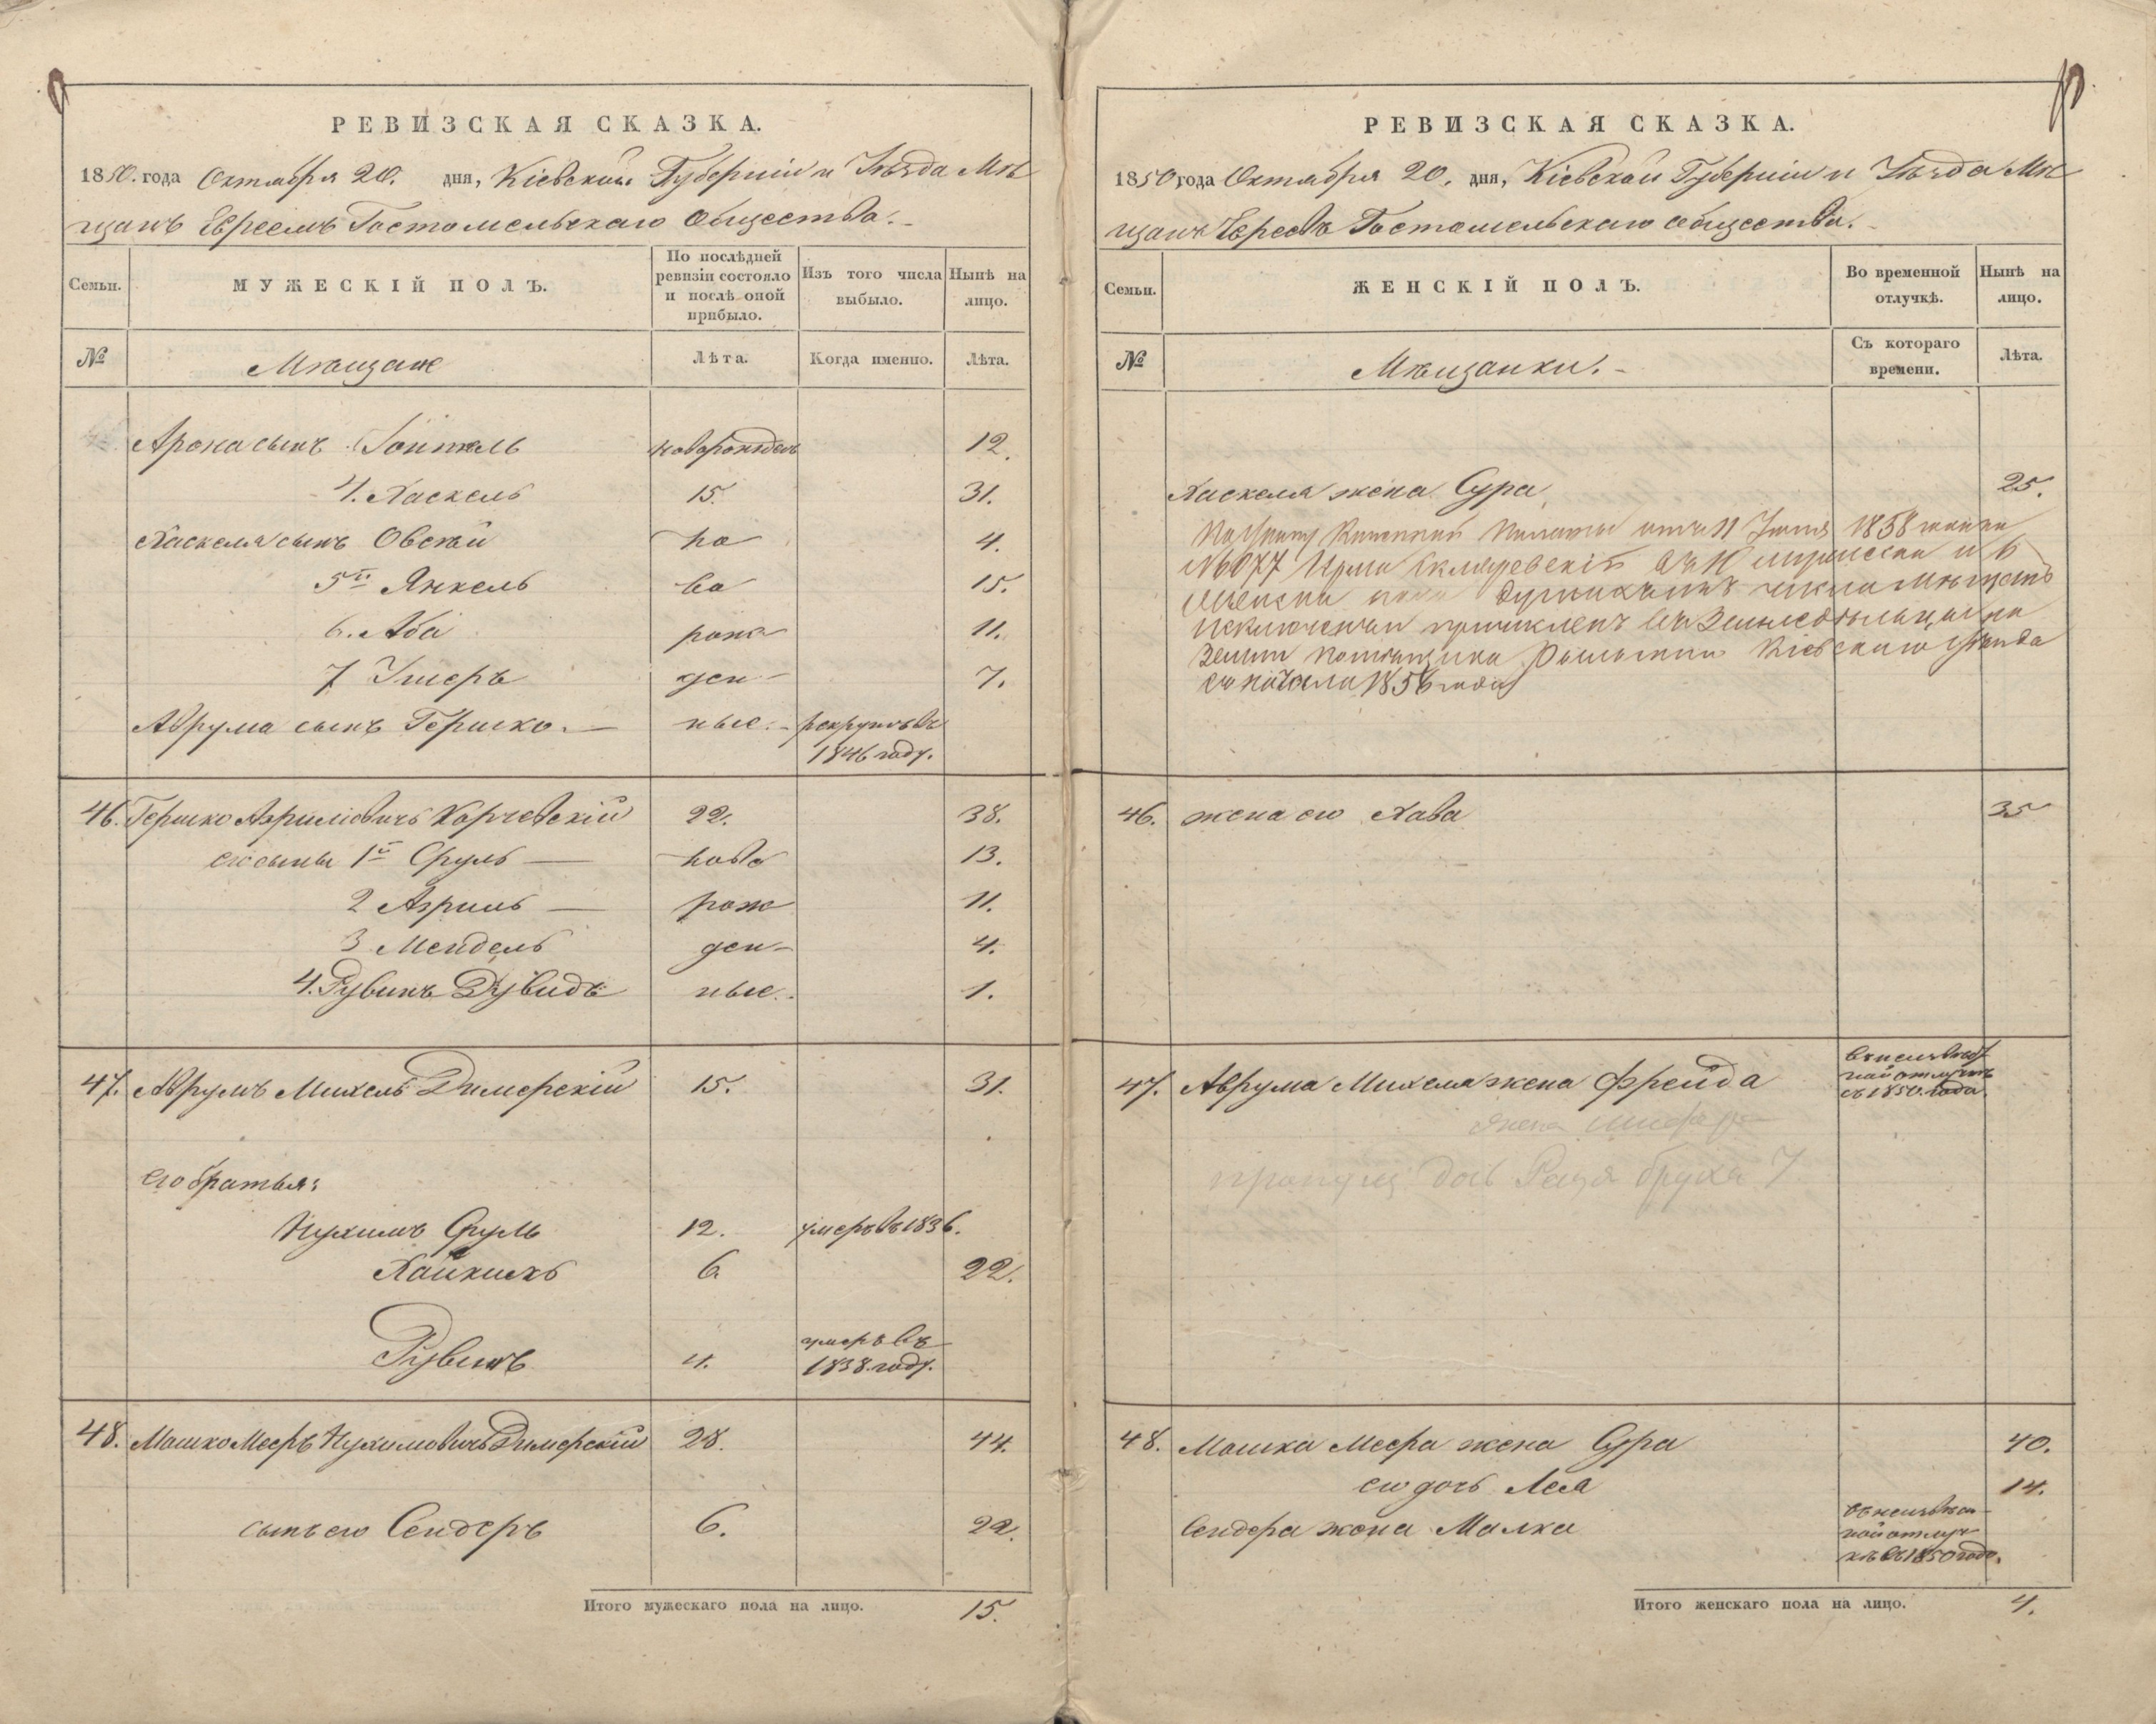 РЕВИЗСКАЯ СКАЗКА.
1850. года Октября 20. дня, Кіевской Губерніи и Уѣзда Мѣ
щанъ Евреевъ Гостомельскаго Общества.
Семьи.
МУЖЕСКІЙ ПОЛЪ.
По послѣдней
ревизіи состояло
и послѣ оной
прибыло.
Изъ того числа
выбыло.
Нынѣ на
лицо.
№
Мѣщане
Лѣта.
Когда именно.
Лѣта.
Арона сынъ Іойнтель новорожден 12.
4. Хаскель 15. 31.
Хаскеля сынъ Овсѣй но 4.
5й Янкель во 15.
6. Аба рож 11.
7 Умеръ ден- 7.
Аврума сынъ Гершко.— ные.- рекрутъ въ
1846 году.
46. Гершко Азриліовичъ Карчевскій 22. 38.
его сыны 1й Сруль — ново 13.
2 Азриль — рож 11.
3 Мендель ден- 4.
4. Рувинъ Дувидъ ные.. 1.
47. Аврумъ Михель Димерскій 15. 31.
его братья:
Нухимъ Сруль 12. умеръ въ 1836.
Хаикихъ 6. 22.
Рувинъ 4. умеръ въ
1838. году.
48. Мошко Мееръ Нухимовичъ Димерскій 28. 44.
сынъ его Сендеръ 6. 22.
Итого мужескаго пола на лицо. 15.
РЕВИЗСКАЯ СКАЗКА.
1850 года Октября 20. дня, Кіевской Губерніи и Уѣзда Мѣ
щанъ Евреевъ Гостомельскаго общества.
Семьи.
ЖЕНСКІЙ ПОЛЪ.
Во временной
отлучкѣ.
Нынѣ на
лицо.
№
Мѣщанки.-
Съ котораго
времени.
Лѣта.
Хаскеля жена Сура 25.
Казенной Палаты отъ 11 1858
исключенъ причисленъ въ Земледѣльцы на
земли помѣщика Кіевскаго уѣзда
съ начала 1858 года
46. жена его Хава 35
47. Аврума Михеля жена Фрейда въ неизвѣст
ной отлучкѣ
съ 1850. года.
жена
пропущ дочь Рася Бруха 7
48. Мошка Меера жена Сура 40.
его дочь Лея 14.
Сендера жена Малка въ неизвѣст
ной отлуч
кѣ съ 1850 года.
Итого женскаго пола на лицо. 4.